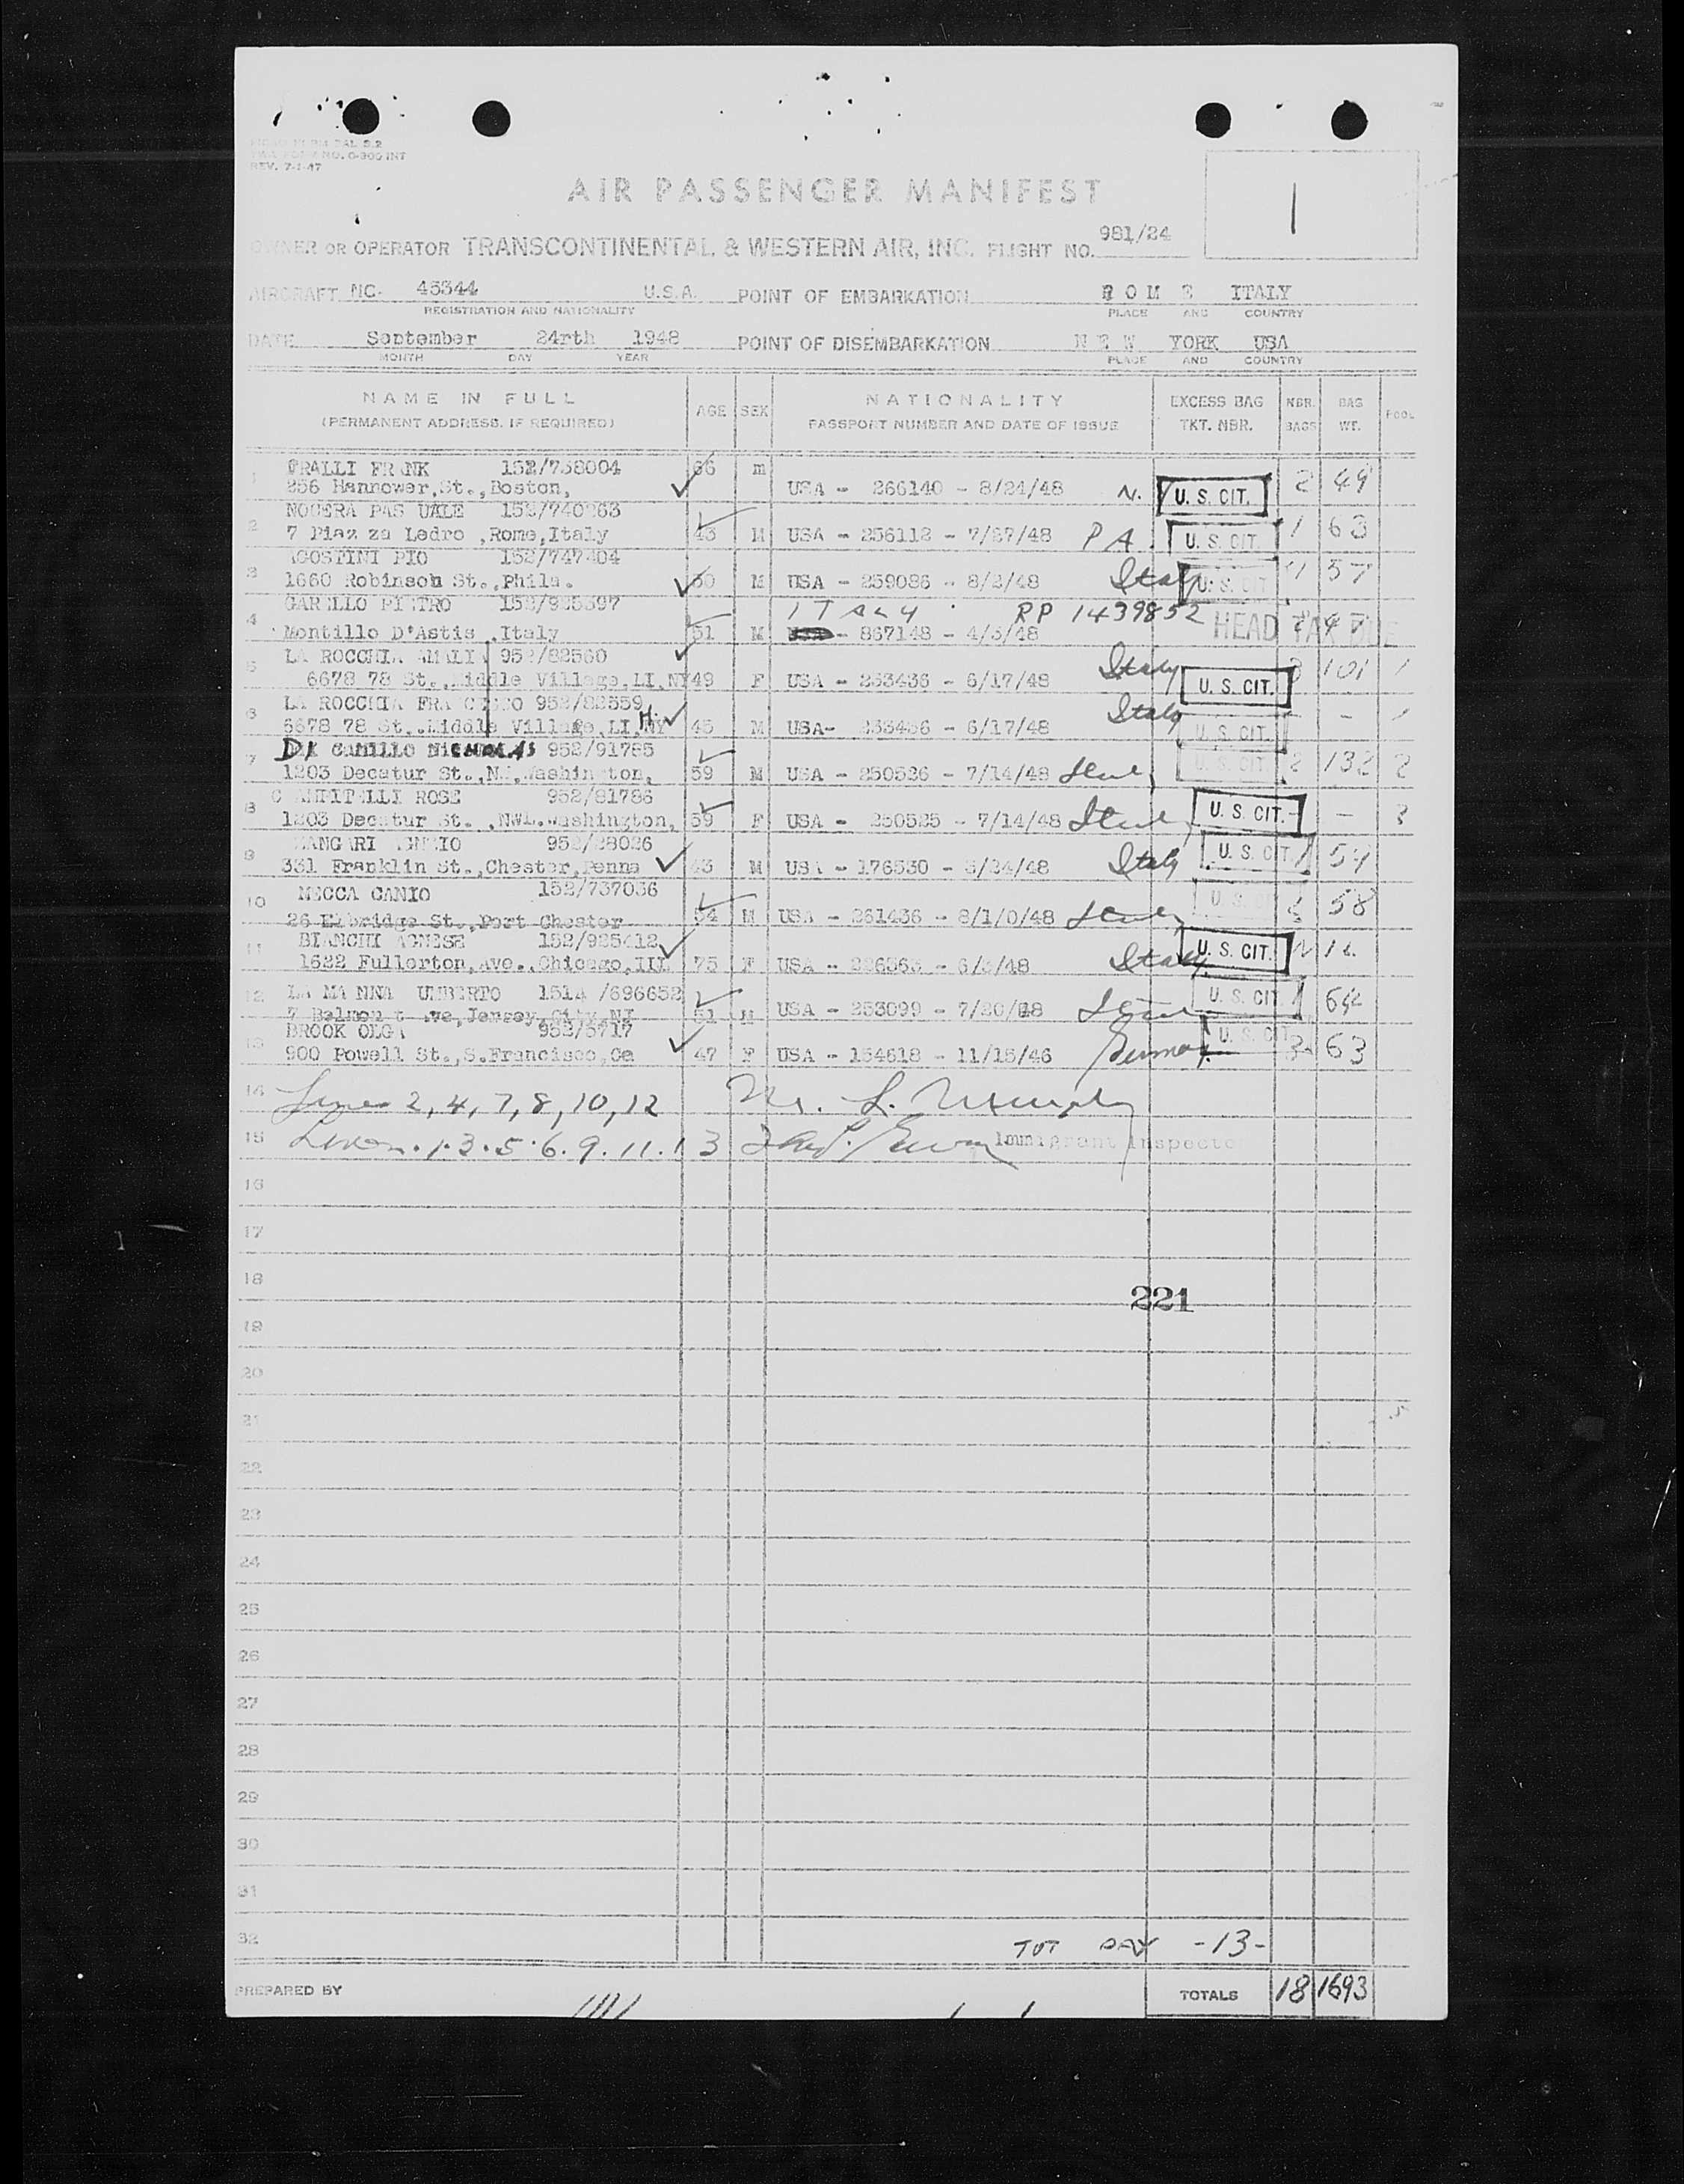 TWA FORM NO. O-300 INT
REV. 7-1-47
1
AIR PASSENGER MANIFEST
OWNER OR OPERATOR TRANSCONTINENTAL & WESTERN AIR, INC. FLIGHT NO. 981/24
AIRCRAFT NC- 45344 U.S.A. POINT OF EMBARKATION R O M E ITALY
REGISTRATION AND NATIONALITY PLACE AND COUNTRY
DATE September 24rth 1948 POINT OF DISEMBARKATION N E W YORK USA
MONTH DAY YEAR PLACE AND COUNTRY
NAME IN FULL AGE SEX NATIONALITY EXCESS BAG NBR. BAG POOL
(PERMANENT ADDRESS, IF REQUIRED) PASSPORT NUMBER AND DATE OF ISSUE TKT. NBR. BAGS WT.
1 FRANK 152/738004 66 m
256 Hannower,St.,Boston, USA - 266140 - 8/24/48 N. U. S. CIT. 2 49
2 NOCERA PAS UALE
7 Piaz za Ledro ,Rome,Italy 43 M USA - 256112 - 7/27/48 P A U. S. CIT. 1 63
3 AGOSTINI PIO 152/747404
1660 Robinson St.,Phila. 50 M USA - 259086 - 8/2/48 Italy U. S. CIT. 1 57
4 GARELLO PIETRO ITALY RP 1439852
Montillo D'Astis ,Italy 51 M - 867148 - 4/3/48 HEAD TAX DUE
5 LA ROCCHIA AMALIA 952/82560
6678 78 St.,Middle Village,LI,NY 49 F USA - 233436 - 6/17/48 Italy U. S. CIT. 3 101 1
6 LA ROCCHIA 952/82559
6678 78 St.,Middle Village,LI,NY H. 45 M USA- 233436 - 6/17/48 Italy U. S. CIT. - - 1
7 DI CAMILLO NICHOLAS 952/91785
1203 Decatur St.,N ,Washington, 59 M USA - 250526 - 7/14/48 Italy U. S. CIT. 2 132 2
8 ROSE 952/91786
1203 Decatur St. ,NW.Washington, 59 F USA - 250525 - 7/14/48 Italy U. S. CIT. - - 2
9 952/28026
331 Franklin St.,Chester,Penna 43 M USA - 176530 - Italy U. S. CIT. 1 54
10 MECCA CANIO 152/737036
26 St.,Port Chester 54 M USA - 261436 - 8/1/0/48 Italy U. S. CIT. 58
11 BIANCHI AGNESE 152/925412
1622 Fullerton,Ave.,Chicago,Ill 75 F USA - Italy U. S. CIT. 1
12 LA MA NNA UMBERTO 1514 /696652
7 Belmon t Ave,Jersey,City,NJ 51 M USA - 253099 - 7/20/48 Italy U. S. CIT. 1 64
13 BROOK OLGA 952/5717
900 Powell St.,S.Francisco,Ca 47 F USA - 154618 - 11/15/46 U. S. CIT. 3 63
14 Lines 2, 4, 7, 8, 10, 12 L. Murphy
15 Lines . 1. 3. 5. 6. 9. 11. 13 Immigrant Inspector
16
17
18
221
19
20
21
22
23
24
25
26
27
28
29
30
31
32 TOT PAX -13-
PREPARED BY TOTALS 18 1693